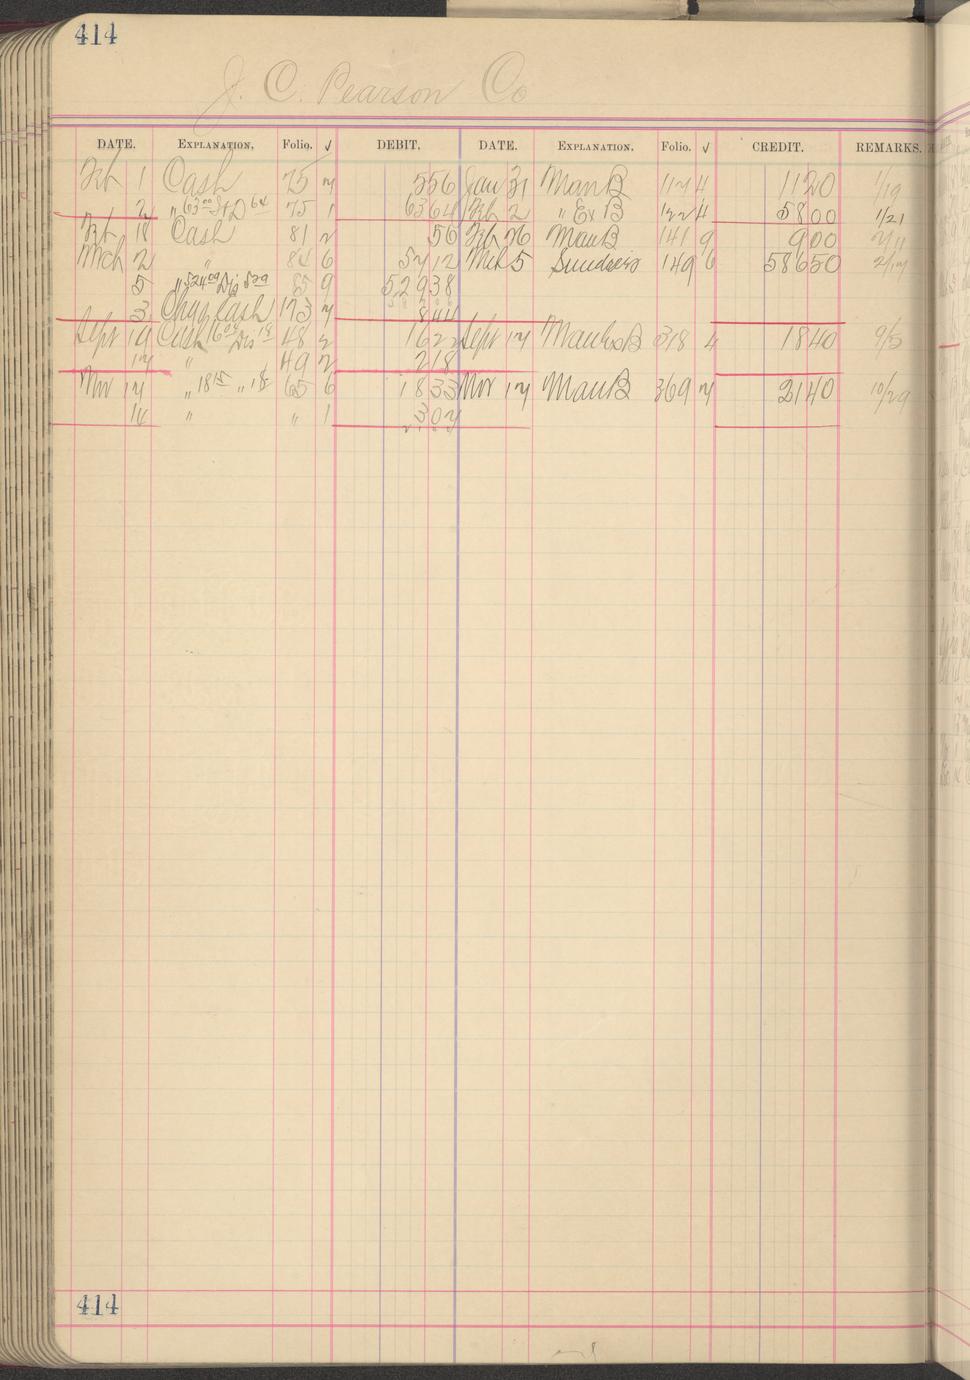 414
J. C. Pearson Co
DATE. EXPLANATION. Folio. √ DEBIT. DATE. EXPLANATION. Folio. √ CREDIT. REMARKS.
Feb 1 Cash 75 7 556 Jan 31 Man B 117 4 1120 1/19
2 " 63 00 Int D 64 75 1 6364 Feb 2 " Ex B 122 4 5800 1/21
Feb 18 Cash 81 2 56 Feb 26 Man B 141 9 900 2/11
Mch 2 " 84 6 5712 Mch 5 Sundries 149 6 58650 2/17
5 " 524 09 Dis 5 29 85 9 52938
3 Chgs Cash 173 7 844
Sept 14 Cash 16 04 Dis 18 48 2 1622 Sept 17 Manfo B 318 4 1840 9/5
17 " 49 2 218
Nov 17 " 18 15 " 18 65 6 1833 Nov 17 Man B 369 7 2140 10/29
14 " " 1 307
414